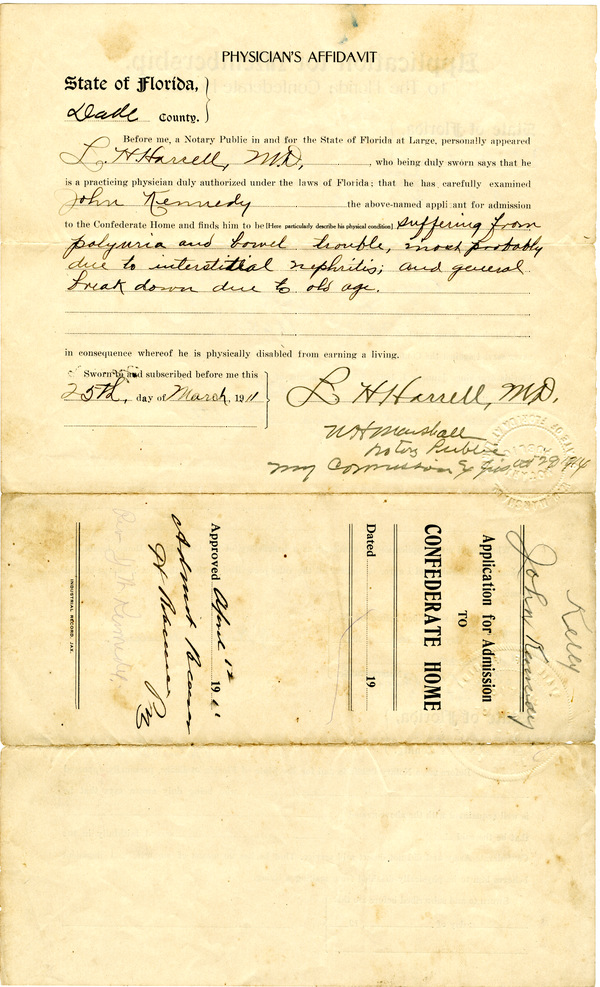 PHYSICIAN'S AFFIDAVIT
State of Florida,
Dade County.
Before me, a Notary Public in and for the State of Florida at Large, personally appeared
L. H. Harrell, M.D., who being duly sworn says that he
is a practicing physician duly authorized under the laws of Florida; that he has carefully examined
John Kennedy the above-named appli ant for admission
to the Confederate Home and finds him to be [Here particularly describe his physical condition] suffering from
polyuria and bowel trouble, most probably
due to interstitial nephritis; and general
break down due to old age.
in consequence whereof he is physically disabled from earning a living.
Sworn to and subscribed before me this
25th, day of March, 1911
L H Harrell, M.D.
W H Marshall
Notary Public
My Commission Expires Oct 29 1914
Kelly
John Kennedy
Application for Admission
TO
CONFEDERATE HOME
Dated 19
Approved April 12 1911
Admit
Rev Kennedy.
INDUSTRIAL RECORD, JAX.